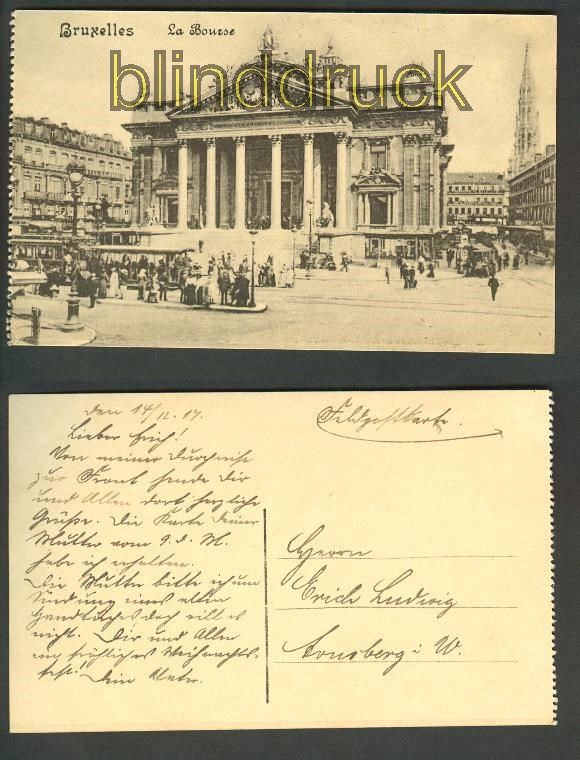 Bruxelles La Bourse
blinddruck
den 14/12.17.
Feldpostkarte.
Lieber Erich!
Von meiner Durchreise
zur Front sende Dir
und Allen dort herzliche
Grüße. Die Karte Deiner
Mutter vom 9. d. M.
habe ich erhalten.
Die Mutter bitte ich um
Sendung eines alten
Handtuches doch eilt es
nicht. Dir und Allen
ein fröhliches Weihnachts-
fest! Dein Vater.
Herrn
Erich Ludwig
Arnsberg i. W.